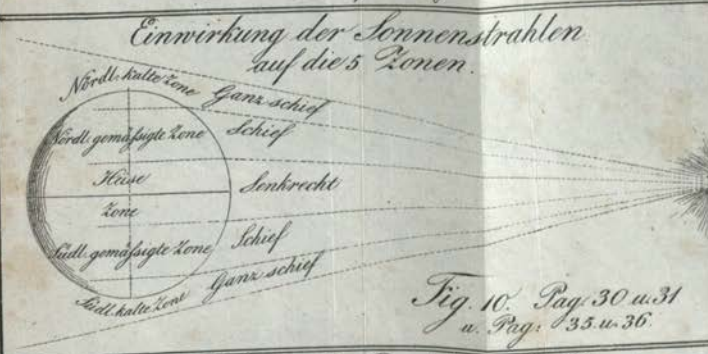 Einwirkung der Sonnenstrahlen
auf die 5 Zonen.
Nördl. kalte Zone
Ganz schief
Nördl. gemäßigte Zone
Schief
Heise
Senkrecht
Zone
Südl. gemäßigte Zone
Schief
Südl. kalte Zone
Ganz schief
Fig. 10. Pag: 30 u. 31
u. Pag: 35 u. 36.